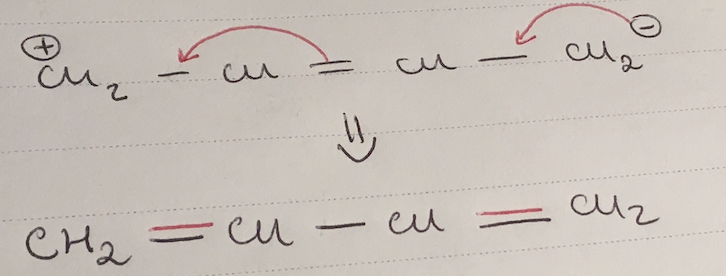 ⊕ ⊖
CH₂ – CH = CH – CH₂
⇓
CH₂ = CH – CH = CH₂